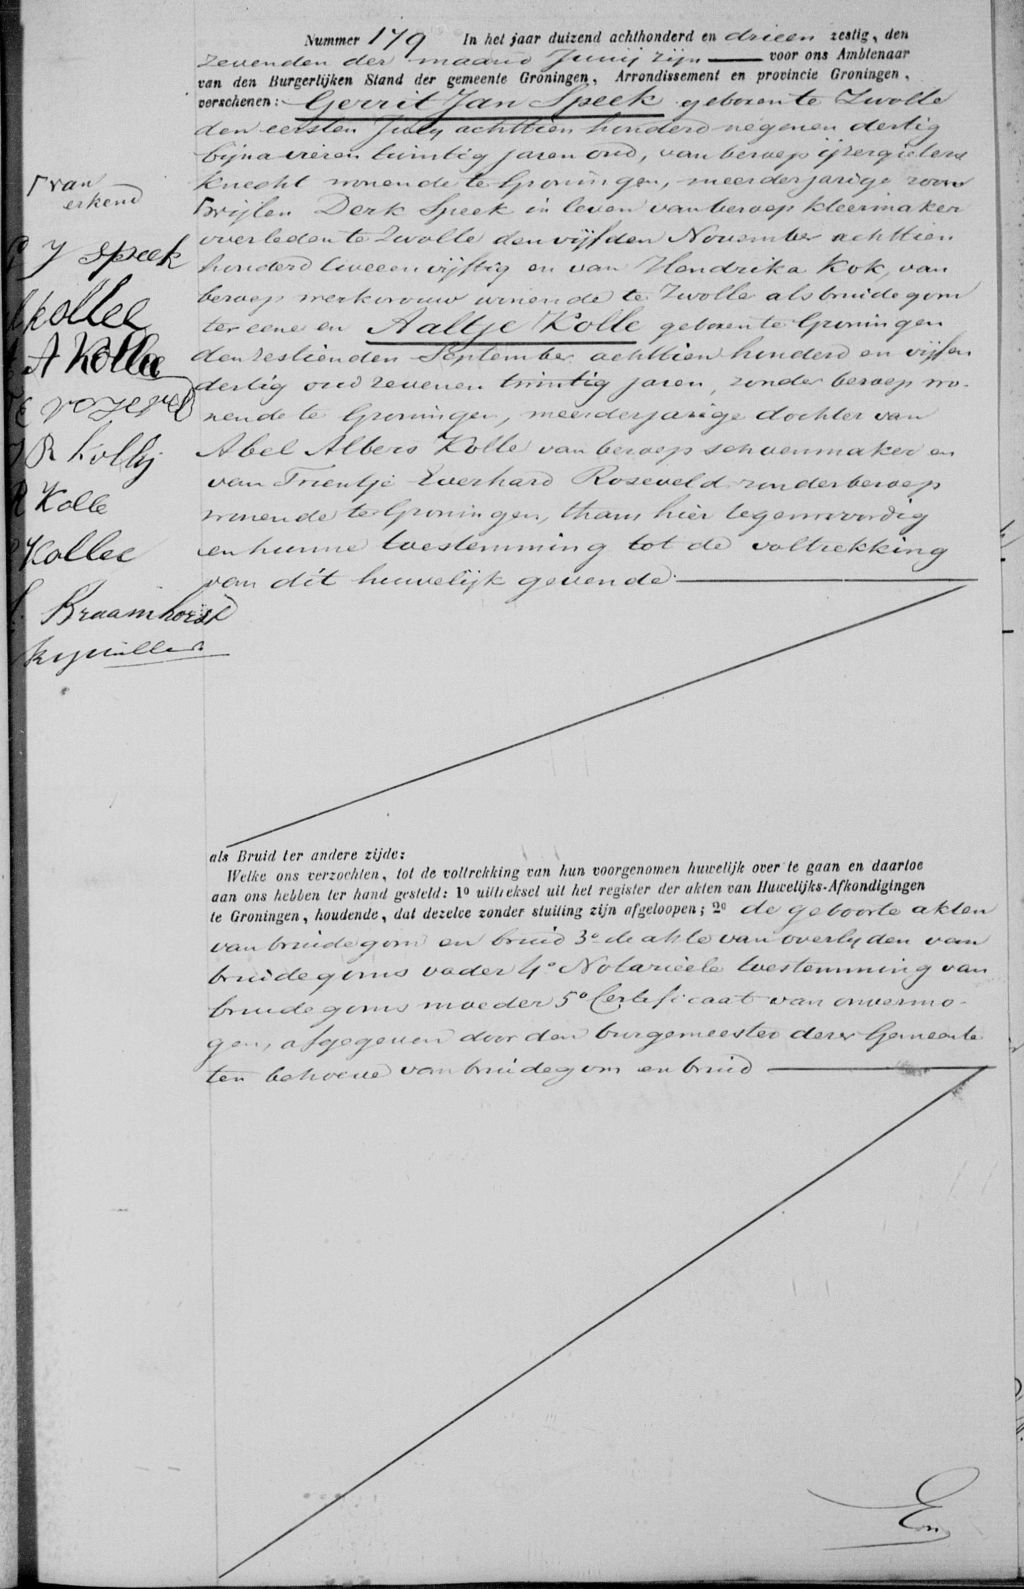 Nummer 179 In het jaar duizend achthonderd en drieen zestig, den
zevenden der maand Junij zijn voor ons Ambtenaar
van den Burgerlijken Stand der gemeente Groningen, Arrondissement en provincie Groningen,
verschenen: Gerrit Jan Speek geboren te Zwolle
den eersten July achttien honderd negenen dertig
bijna vieren twintig jaren oud, van beroep ijzergieters
knecht wonende te Groningen, meerderjarige zoon
Γwijlen Derk Speek in leven van beroep kleermaker
overleden te Zwolle den vijfden November achttien
honderd tweeen vijftig en van Hendrika Kok, van
beroep werkvrouw wonende te Zwolle als bruidegom
ter eene en Aaltje Kolle geboren te Groningen
den zestienden September achttien honderd en vijfen
dertig oud zevenen twintig jaren, zonder beroep wo-
nende te Groningen, meerderjarige dochter van
Abel Albers Kolle van beroep schoenmaker en
van Trientje Everhard Roseveld zonder beroep
wonende te Groningen, thans hier tegenwoordig
en hunne toestemming tot de voltrekking
van dit huwelijk gevende
Γvan
erkend
G J Speek
Kollee
A Kolle
R Kolle
Kollee
Braamhorst
als Bruid ter andere zijde:
Welke ons verzochten, tot de voltrekking van hun voorgenomen huwelijk over te gaan en daartoe
aan ons hebben ter hand gesteld: 1º uittreksel uit het register der akten van Huwelijks-Afkondigingen
te Groningen, houdende, dat dezelve zonder stuiting zijn afgeloopen; 2º de geboorte akten
van bruidegom en bruid 3º de akte van overlyden van
bruidegoms vader 4º Notarieele toestemming van
bruidegoms moeder 5º Certificaat van onvermo-
gen, afgegeven door den burgemeester dezer Gemeente
ten behoeve van bruidegom en bruid
En